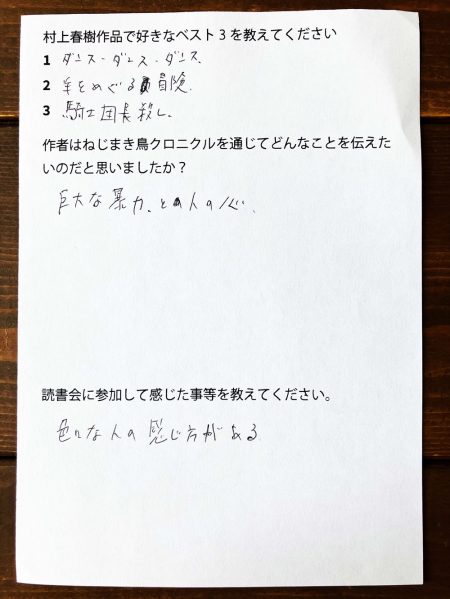 村上春樹作品で好きなベスト3を教えてください
1 ダンス・ダンス・ダンス.
2 羊をめぐる冒険.
3 騎士団長殺し.
作者はねじまき鳥クロニクルを通じてどんなことを伝えた
いのだと思いましたか？
巨大な暴力、と人の心.
読書会に参加して感じた事等を教えてください。
色々な人の感じ方がある